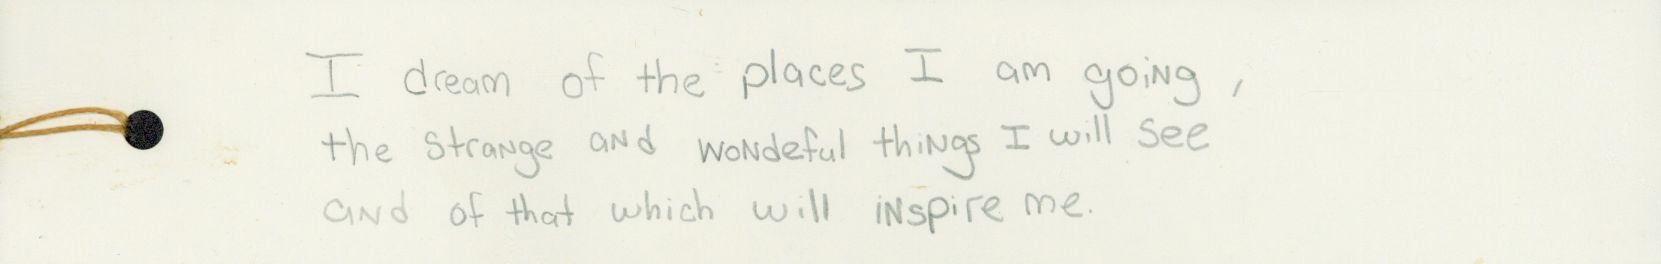 I dream of the places I am going,
the strange and wondeful things I will see
and of that which will inspire me.